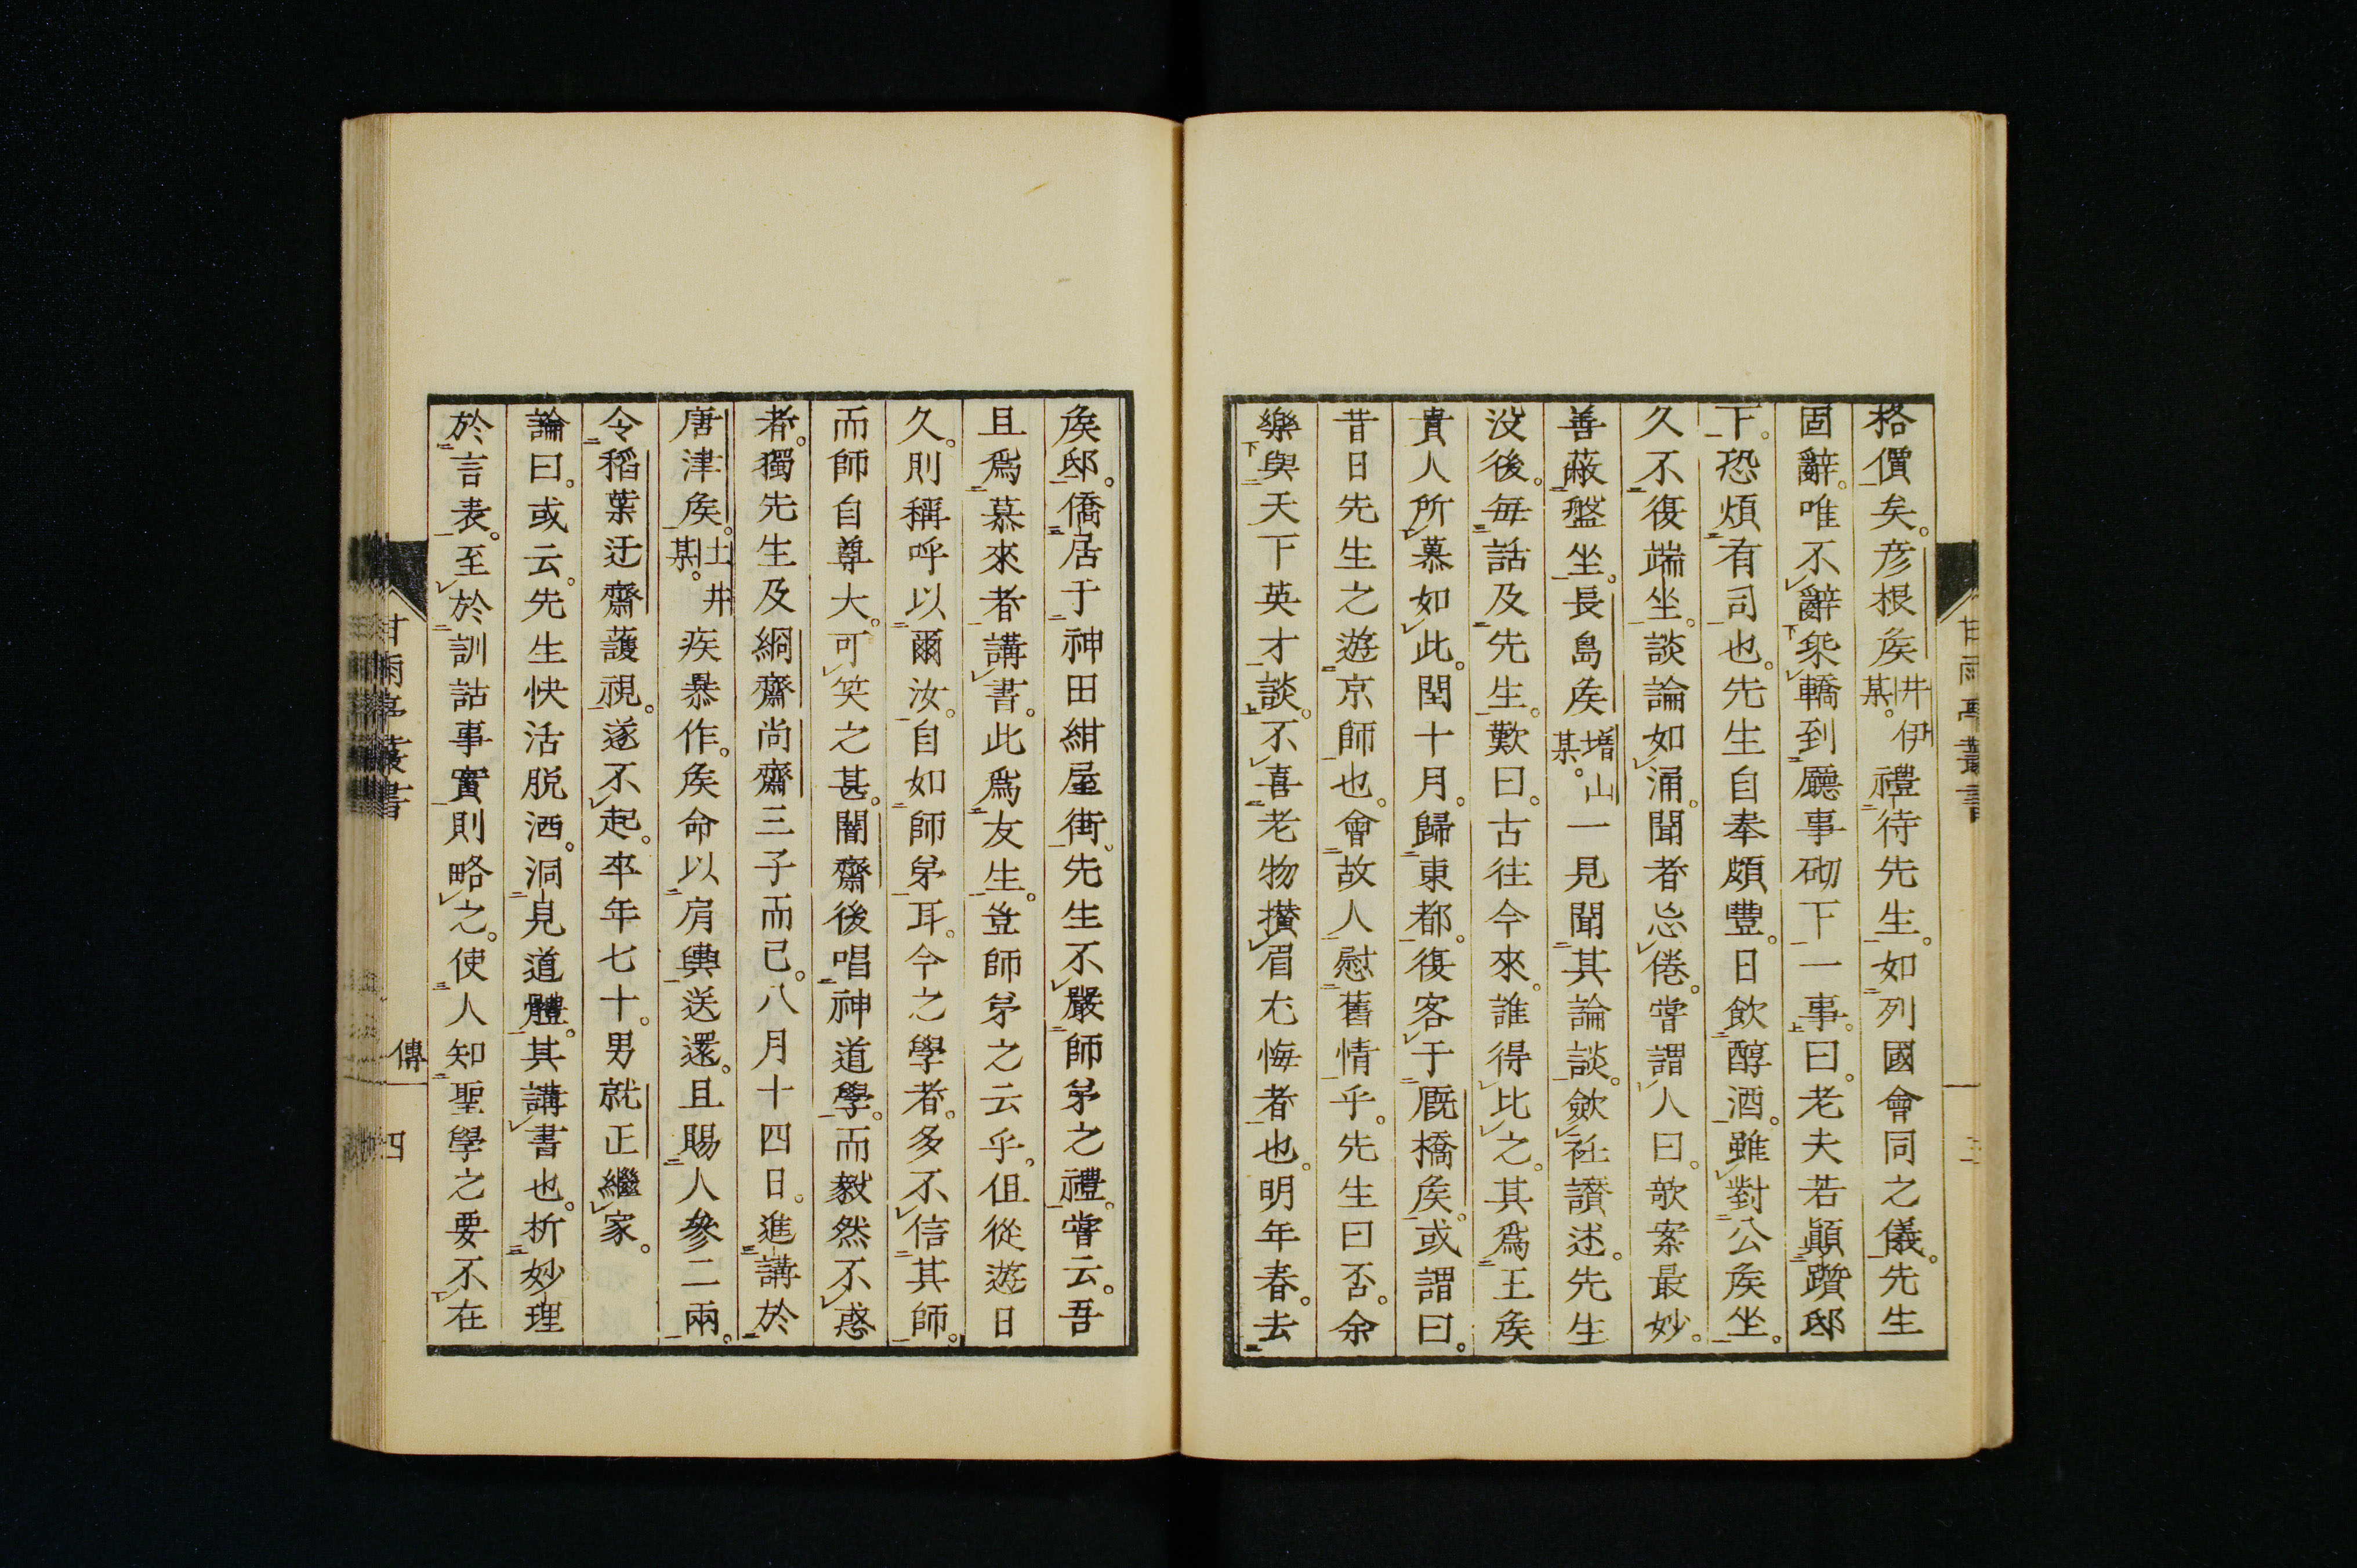 格價矣。彦根矦井伊某。禮待先生。如列國會同之儀。先生
固辭。唯不辭椉轎到廳事砌下一事。曰。老夫若顚躓邸
下。恐煩有司也。先生自奉頗豐。日飮醇酒。雖對公矦坐。
久不復端坐。談論如涌。聞者忘倦。嘗謂人曰。欹案最妙。
善蔽盤坐。長島矦增山某。一見聞其論談。歛衽讚述。先生
沒後。每話及先生。歎曰。古往今來。誰得比之。其爲王矦
貴人所慕如此。閏十月。歸東都。復客于厩橋矦。或謂曰。
昔日先生之遊京師也。會故人慰舊情乎。先生曰否。余
樂與天下英才談。不喜老物攅眉尤悔者也。明年春。去
矦邸。僑居于神田紺屋街。先生不嚴師弟之禮。嘗云。吾
且爲慕來者講書。此爲友生。豈師弟之云乎。但從遊日
久。則稱呼以爾汝。自如師弟耳。今之學者。多不信其師。
而師自尊大。可笑之甚。闇齋後唱神道學。而毅然不惑
者。獨先生及絅齋尚齋三子而已。八月十四日。進講於
唐津矦。土井某。疾暴作。矦命以肩輿送還。且賜人參二兩。
令稻葉迂齋護視。遂不起。卒年七十。男就正繼家。
論曰。或云。先生快活脫洒。洞見道體。其講書也。析妙理
於言表。至於訓詁事實則略之。使人知聖學之要不在
甘雨亭叢書
傳
四
甘雨亭叢書